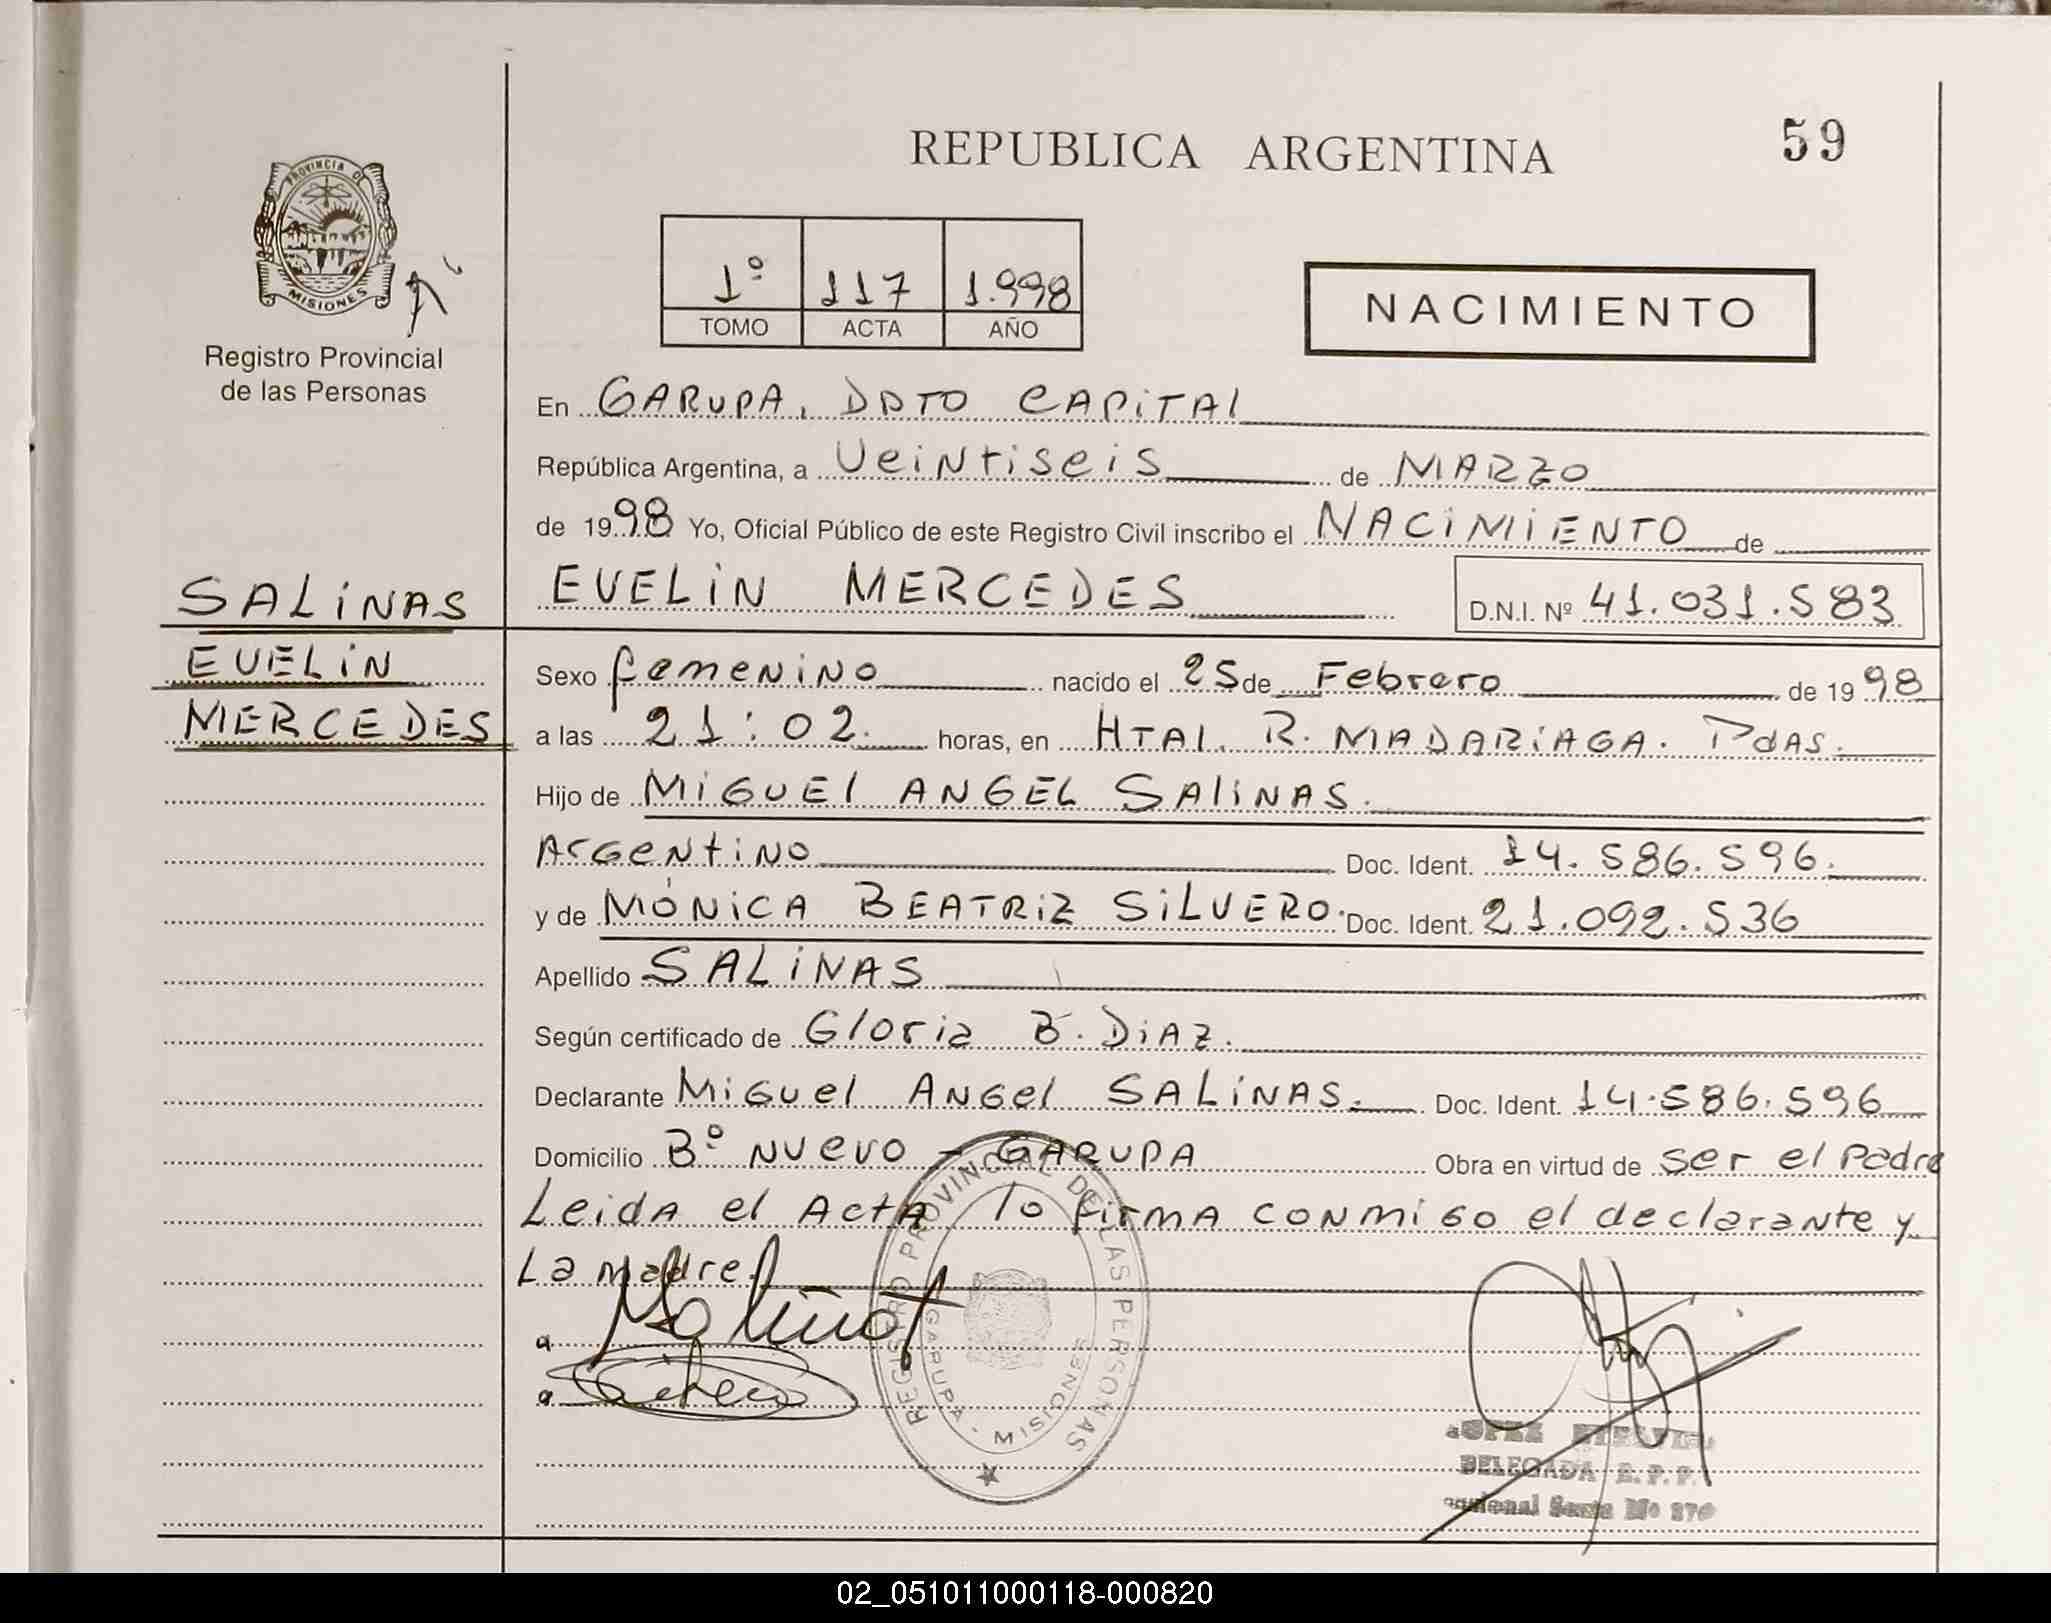 REPUBLICA ARGENTINA
59
PROVINCIA DE
MISIONES
Registro Provincial
de las Personas
1º 117 1.998
TOMO ACTA AÑO
NACIMIENTO
En GARUPA, DPTO CAPITAL
República Argentina, a Veintiseis de MARZO
de 1998 Yo, Oficial Público de este Registro Civil inscribo el NACIMIENTO de
SALINAS
EVELIN
MERCEDES
EVELIN MERCEDES D.N.I. Nº 41.031.583
Sexo femenino nacido el 25 de Febrero de 1998
a las 21:02. horas, en HTAL. R. MADARIAGA. PdAS.
Hijo de MIGUEL ANGEL SALINAS.
ARGENTINO Doc. Ident. 14.586.596.
y de MÓNICA BEATRIZ SILVERO. Doc. Ident. 21.092.536
Apellido SALINAS
Según certificado de Gloria B. DIAZ.
Declarante Miguel Angel SALINAS. Doc. Ident. 14.586.596
Domicilio Bº NUEVO - GARUPA Obra en virtud de ser el Padre
Leida el Acta lo firma conmigo el declarante y
La madre
REGISTRO PROVINCIAL DE LAS PERSONAS
GARUPA - MISIONES
DELEGADA R.P.P.
02_051011000118-000820